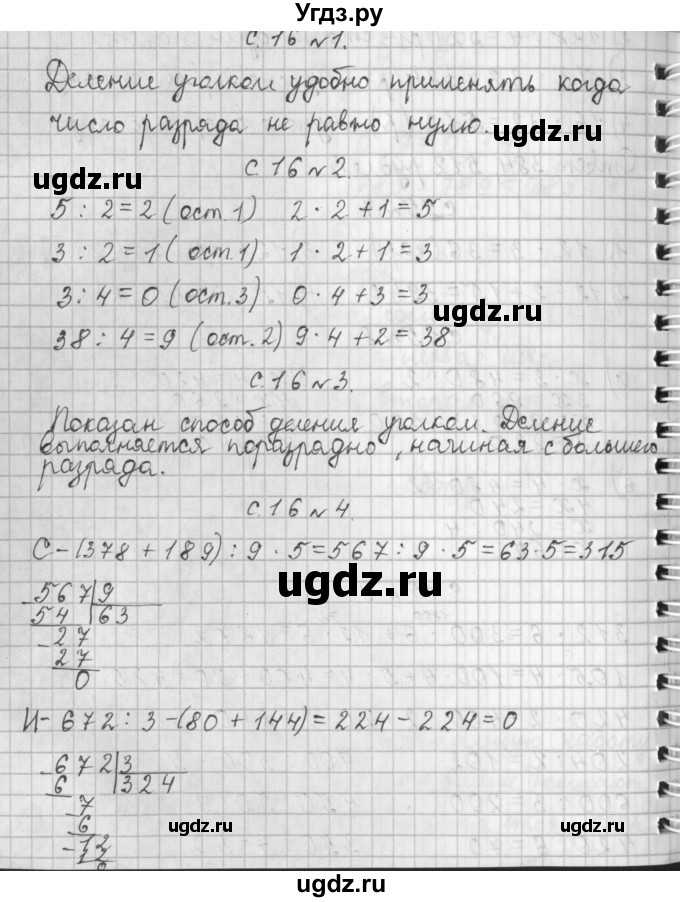 Угдз.ру
с. 16 № 1.
Деление уголком удобно применять когда
число разряда не равно нулю.
ugdz.ru
ugdz.ru
с. 16 № 2.
5 : 2 = 2 ( ост. 1) 2 · 2 + 1 = 5
3 : 2 = 1 ( ост. 1) 1 · 2 + 1 = 3
3 : 4 = 0 (ост. 3) 0 · 4 + 3 = 3
ugdz.ru
38 : 4 = 9 (ост. 2) 9 · 4 + 2 = 38
с. 16 № 3.
Показан способ деления уголком. Деление
выполняется поразрядно, начиная с большего
разряда.
с. 16 № 4.
С – (378 + 189) : 9 · 5 = 567 : 9 · 5 = 63 · 5 = 315
ugdz.ru
567 9
54 63
- 27
27
0
И – 672 : 3 – (80 + 144) = 224 – 224 = 0
- 672 3
6 324
- 7
6
ugdz.ru ugdz.ru
- 12
12
0
ugdz.ru